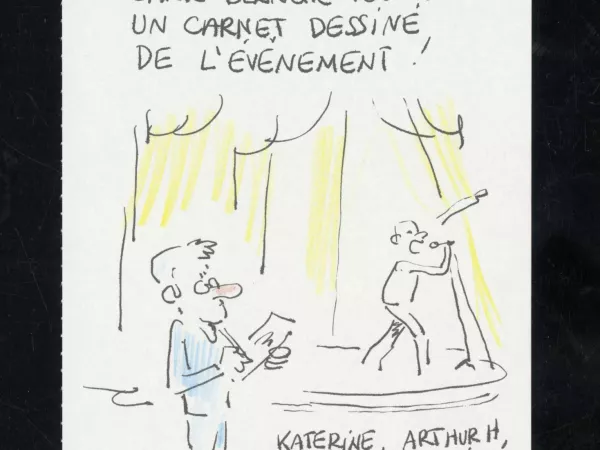 UN CARNET DESSINÉ
DE L'ÉVÉNEMENT !
KATERINE, ARTHUR H,